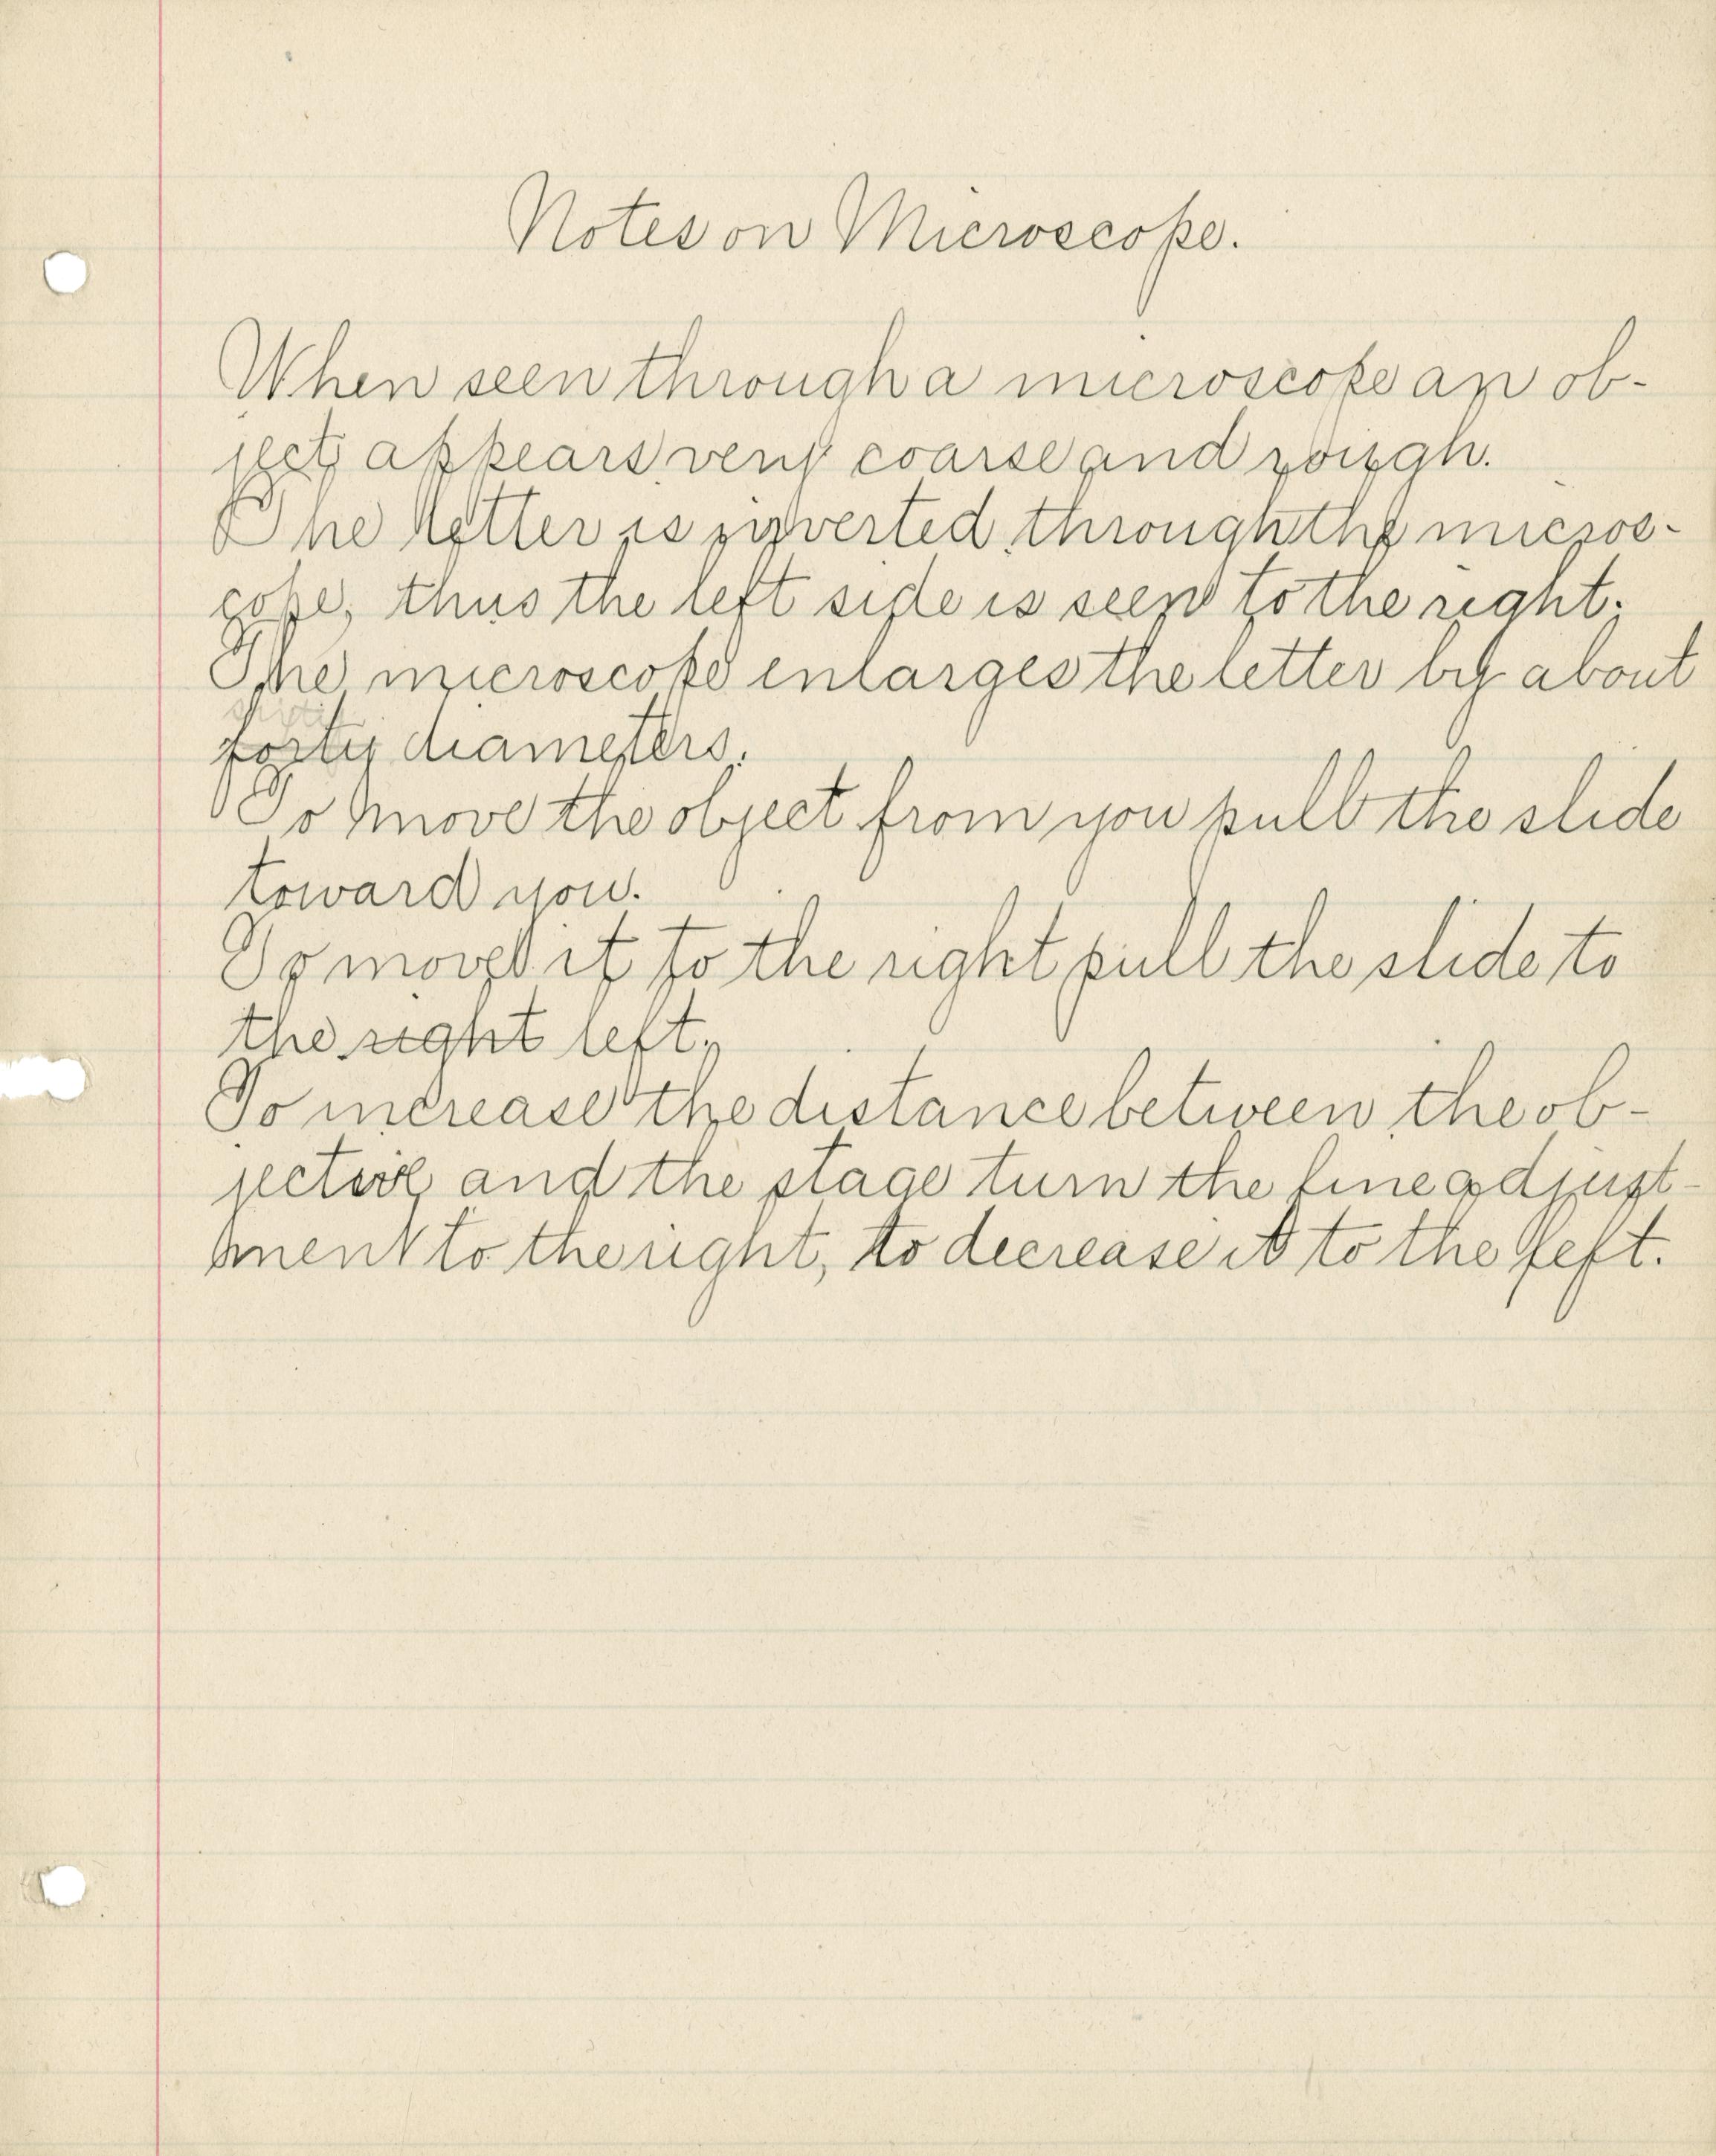 Notes on Microscope.
When seen through a microscope an ob-
ject appears very coarse and rough.
The letter is inverted through the micros-
cope, thus the left side is seen to the right.
The microscope enlarges the letter by about
forty diameters.
To move the object from you pull the slide
toward you.
To move it to the right pull the slide to
the right left.
To increase the distance between the ob-
jective and the stage turn the fine adjust-
ment to the right, to decrease it to the left.